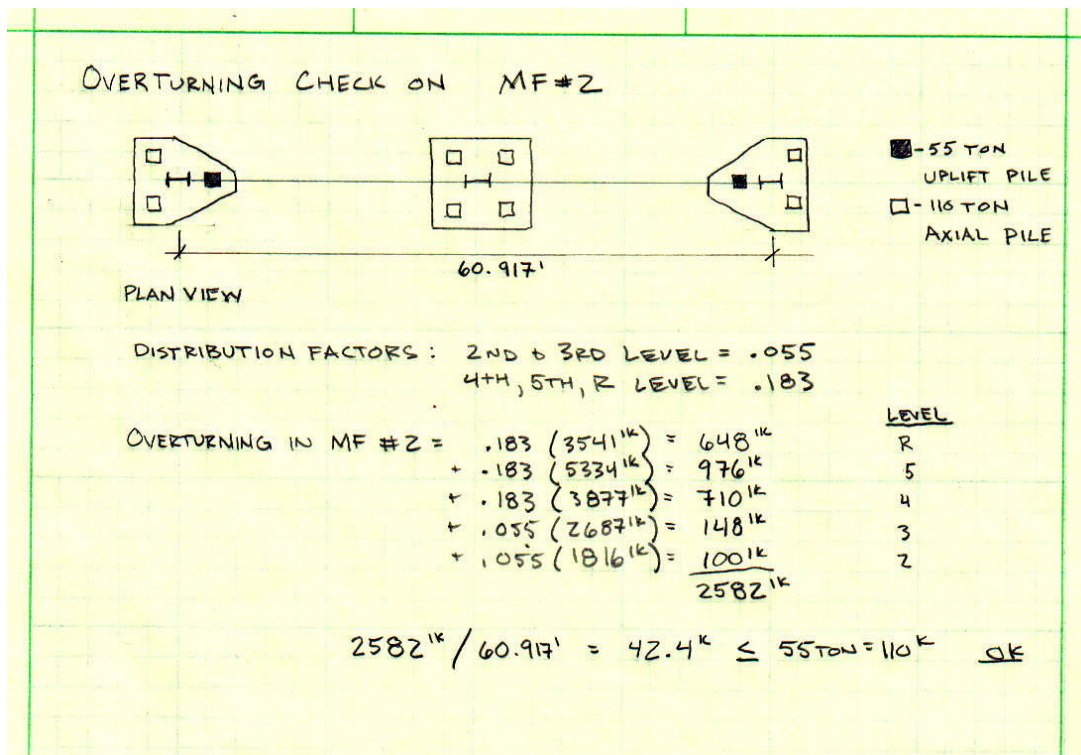 OVERTURNING CHECK ON MF#2
■-55 TON
UPLIFT PILE
□-110 TON
AXIAL PILE
60.917'
PLAN VIEW
DISTRIBUTION FACTORS: 2ND & 3RD LEVEL = .055
4TH, 5TH, R LEVEL = .183
LEVEL
OVERTURNING IN MF #2 = .183 (3541'k) = 648'k R
+ .183 (5334'k) = 976'k 5
+ .183 (3877'k) = 710'k 4
+ .055 (2687'k) = 148'k 3
+ .055 (1816'k) = 100'k 2
2582'k
2582'k / 60.917' = 42.4k ≤ 55 TON = 110k OK